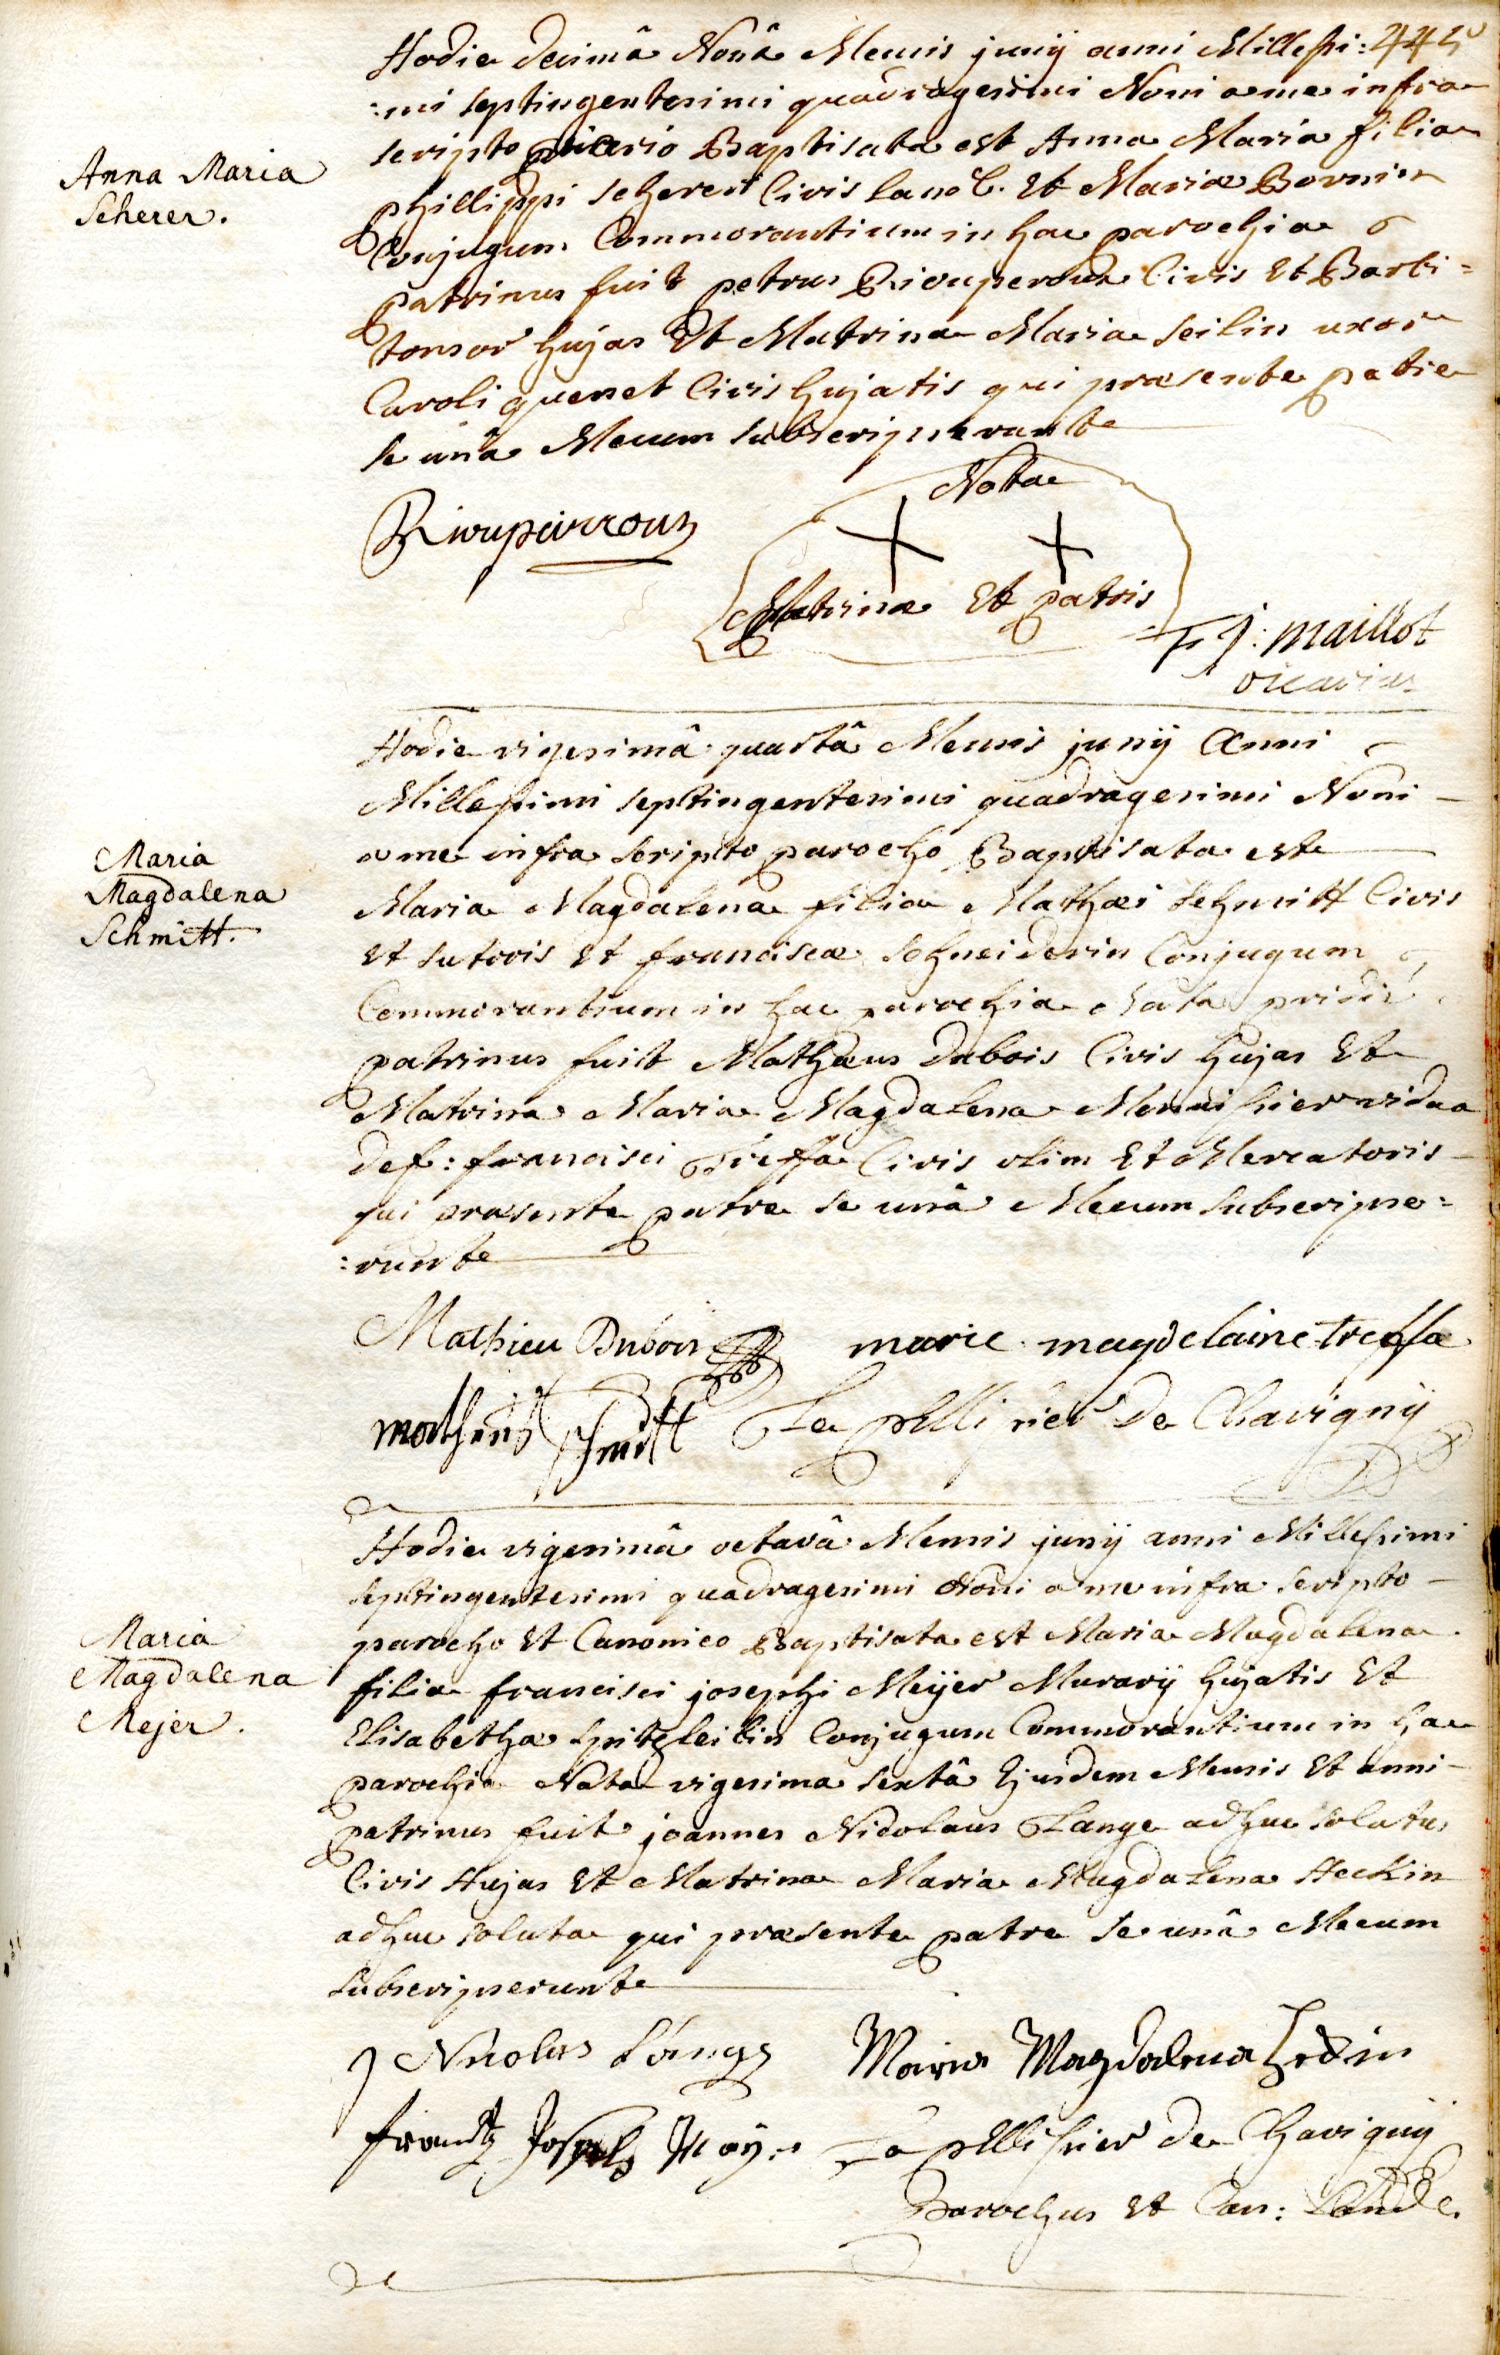 445
Hodie decimâ Nonâ Mensis junij anni Millessi:
:mi septingentesimi quadragesimi Noni a me infra
scripto vicario Baptisata est Anna Maria filia
Anna Maria
Scherer.
phillippi scherer Civis land. Et Mariæ Bornin
Conjugum Commorantium in hac parochia
patrinus fuit petrus Riouperoux Civis Et Barbi=
tonsor hujas Et Matrina Maria seilin uxor
Caroli quenet Civis hujatis qui præsente patre
se unâ Mecum subscripserunt
Nota
Riouperroux
Matrinæ Et patris
F J: maillot
vicarius
Hodie vigesimâ quartâ Mensis junij Anni
Millessimi septingentesimi quadragesimi Noni
a me infra scripto parocho Baptisata est
Maria
Magdalena
Schmitt.
Maria Magdalena filia Mathæi schmitt Civis
et sutoris et franciscæ schneiderin Conjugum
Commorantium in hac parochia Nata pridie
patrinus fuit Mathæus dubois Civis hujas Et
Matrina Maria Magdalena Menuissier vidua
def: francisci Treffa Civis olim Et Mercatoris
qui præsente patre se unâ Mecum subscripse=
:runt
Mathieu Dubois marie magdelaine treffa
matheus schmitt Le pellissier de Chavignÿ
Hodie vigesimâ octavâ Mensis junij anni Millessimi
septingentesimi quadragesimi Noni a me infra scripto
parocho et Canonico Baptisata est Maria Magdalena
Maria
Magdalena
Mejer.
filia francisci josephi Meÿer Murarij hujatis Et
Elisabetha spitzleibin Conjugum Commorantium in hac
parochia Nata vigesima sextâ Ejusdem Mensis Et anni
patrinus fuit joannes Nicolaus Lange adhuc solutus
Civis Hujas et Matrina Maria Magdalena Heckin
adhuc soluta qui præsente patre se unâ Mecum
subscripserunt
J Nicolas Lange Maria Magdalena heckin
frantz Joseph Maÿer Le pellissier de Chavignÿ
Parochus et Can: